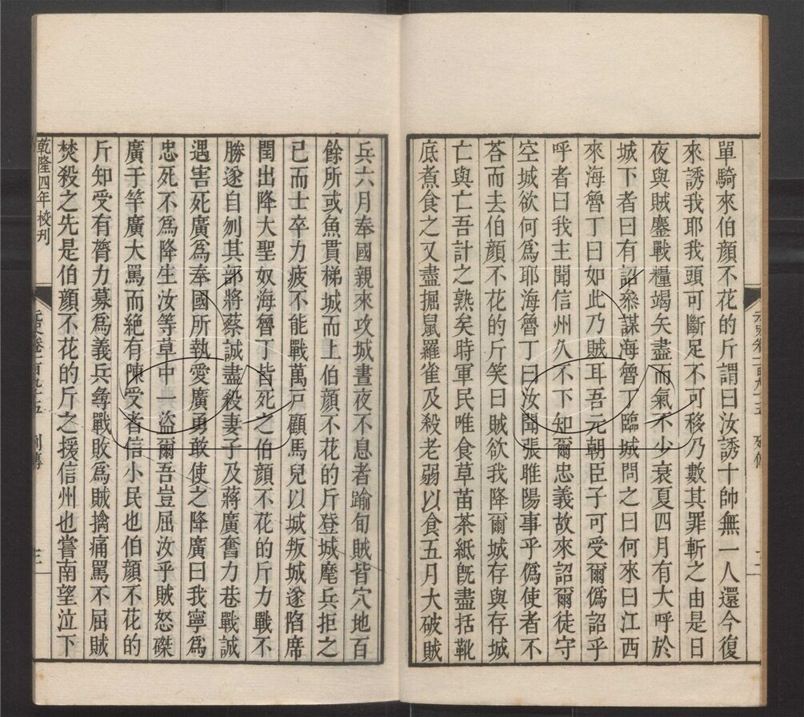 單騎來伯顔不花的斤謂曰汝誘十帥無一人還今復
來誘我耶我頭可斷足不可移乃數其罪斬之由是日
夜與賊鏖戰糧竭矢盡而氣不少衰夏四月有大呼於
城下者曰有詔叅謀海魯丁臨城問之曰何來曰江西
來海魯丁曰如此乃賊耳吾元朝臣子可受爾僞詔乎
呼者曰我主聞信州久不下知爾忠義故來詔爾徒守
空城欲何爲耶海魯丁曰汝聞張睢陽事乎僞使者不
荅而去伯顔不花的斤笑曰賊欲我降爾城存與存城
亡與亡吾計之熟矣時軍民唯食草苗茶紙旣盡括靴
底煮食之又盡掘鼠羅雀及殺老弱以食五月大破賊
元史卷一百九十五 列傳
兵六月奉國親來攻城晝夜不息者踰旬賊皆穴地百
餘所或魚貫梯城而上伯顔不花的斤登城麾兵拒之
已而士卒力疲不能戰萬戸顧馬兒以城叛城遂陷席
閏出降大聖奴海魯丁皆死之伯顔不花的斤力戰不
勝遂自刎其部將蔡誠盡殺妻子及蔣廣奮力巷戰誠
遇害死廣爲奉國所執愛廣勇敢使之降廣曰我寧爲
忠死不爲降生汝等草中一盜爾吾豈屈汝乎賊怒磔
廣于竿廣大罵而絶有陳受者信小民也伯顔不花的
斤知受有膂力募爲義兵尋戰敗爲賊擒痛罵不屈賊
焚殺之先是伯顔不花的斤之援信州也嘗南望泣下
乾隆四年校刊
元史卷一百九十五 列傳